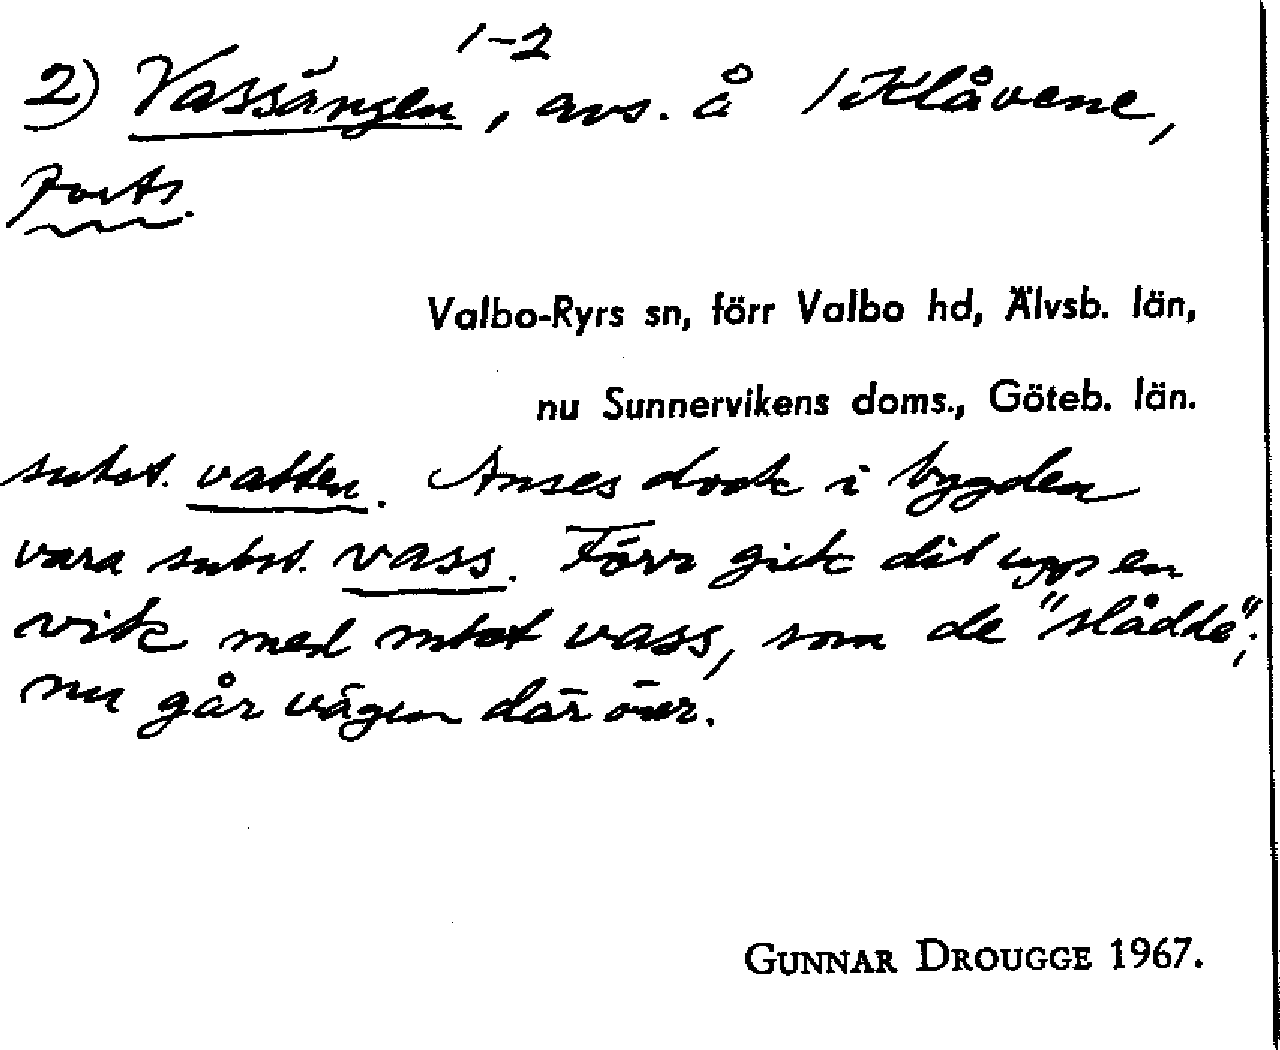 2) Vassängen 1-2, avs. å 1 Klåvene,
Forts.
Valbo-Ryrs sn, förr Valbo hd, Älvsb. län,
nu Sunnervikens doms., Göteb. län.
subst. vatten. Anses dock i bygden
vara subst. vass. Förr gick dit upp en
vik med mtat vass, som de "slådde";
nu går vägen där över.
GUNNAR DROUGGE 1967.